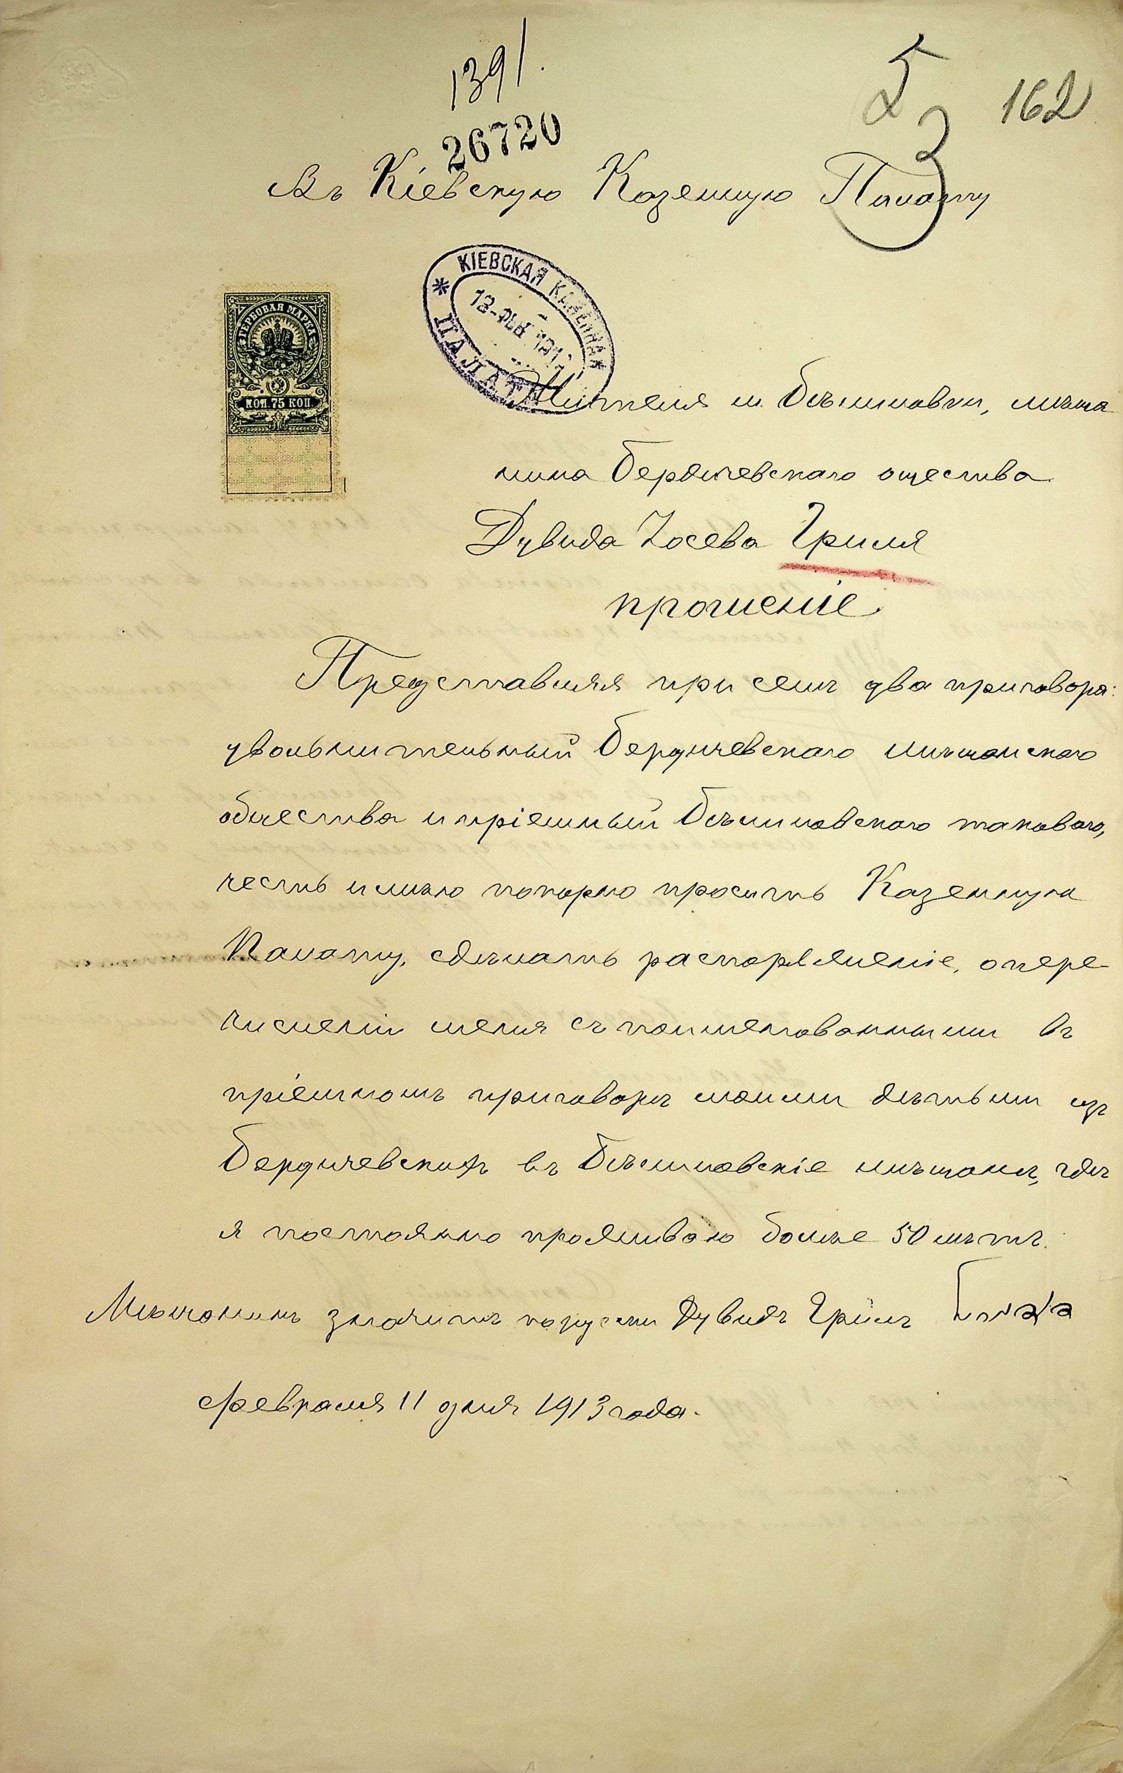 1391.
26720
5
3
162
Въ Кіевскую Казенную Палату
КІЕВСКАЯ КАЗЕННАЯ ПАЛАТА
ГЕРБОВАЯ МАРКА
КОП. 75 КОП.
Жителя м. Бѣлиловки, мѣща
нина Бердичевскаго ощества
Дувида Іосева Гриля
прошеніе
Представляя при семъ два приговора:
увольнительный Бердичевскаго мѣщанскаго
общества и пріемный Бѣлиловскаго таковаго,
честь имѣю покорно просить Казенную
Палату, сдѣлать распоряженіе, о пере-
численіи меня съ поименованными въ
пріемномъ приговорѣ моими дѣтьми изъ
Бердичевскихъ въ Бѣлиловскіе мѣщане, гдѣ
я постоянно проживаю болѣе 50 лѣтъ.
Мѣщанинъ значитъ порусски Дувидъ Гриль
Февраля 11 дня 1913 года.